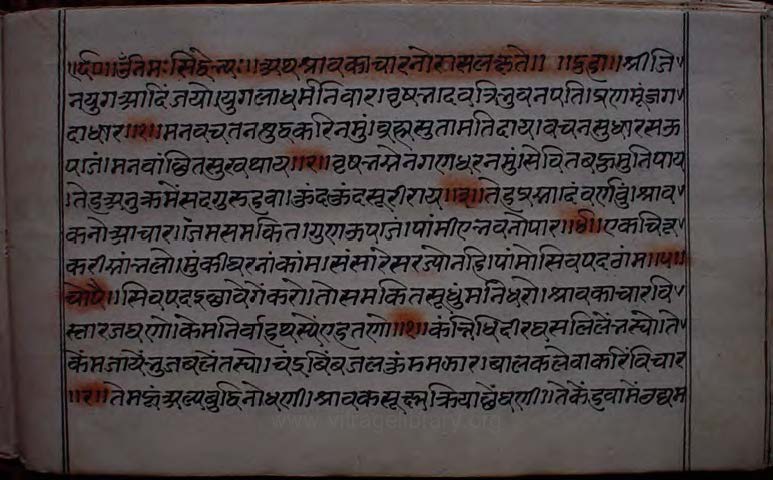 ॥र्द०॥ उँ नमः सिद्धेभ्यः ॥ अथ श्रावकाचारनो रास लख्यते ॥ ॥ दुहा ॥ श्री जि
नयुग आदिं जयो । युगलाधर्म निवार । वृषभादव त्रिभुवनपति । प्रणमूं जग
दाधार ॥१॥ मन वच तन शुद्ध करि नमुं । ब्रह्मसुता मति दाय । वचन सुधारस ऊ
पजं । मनवांछित सुख थाय ॥२॥ वृषभसेन गणधर नमुं । सेवित बहु मुनि पाय
। तेह अनुक्रमें सदगुरु हुवा । कुंदकुंद सूरी राय ॥३॥ तेह प्रसादं वर्णवुं । श्राव
कनो आचार । जंम समकित गुण ऊपजं । पांमी ए भवनो पार ॥४॥ एक चित्त
करी सांभलो । मुंकी घरनां कांम । संसारें सरज्यो नहि । पांमो सिवपद ठांम ॥५॥
चोपै ॥ सिवपद इछा वेगें करो । तो समकित सूधुं मनि धरो । श्रावकाचार वि
स्तार ज घणो । केम निर्वाह थस्यें एह तणो ॥१॥ कंभिधि दीरघ सलिलें भस्यो । ते
किंम जायें भुजबलें तस्यो । चंद्रबिंब जल कुंभ मझार । बालक लेवा करिं विचार
॥२॥ तेम हूं अल्पबुद्धिनो धणी । श्रावक सूक्ष्म क्रिया छें घणी । ते केहवामें उद्यम
www.vitragelibrary.org